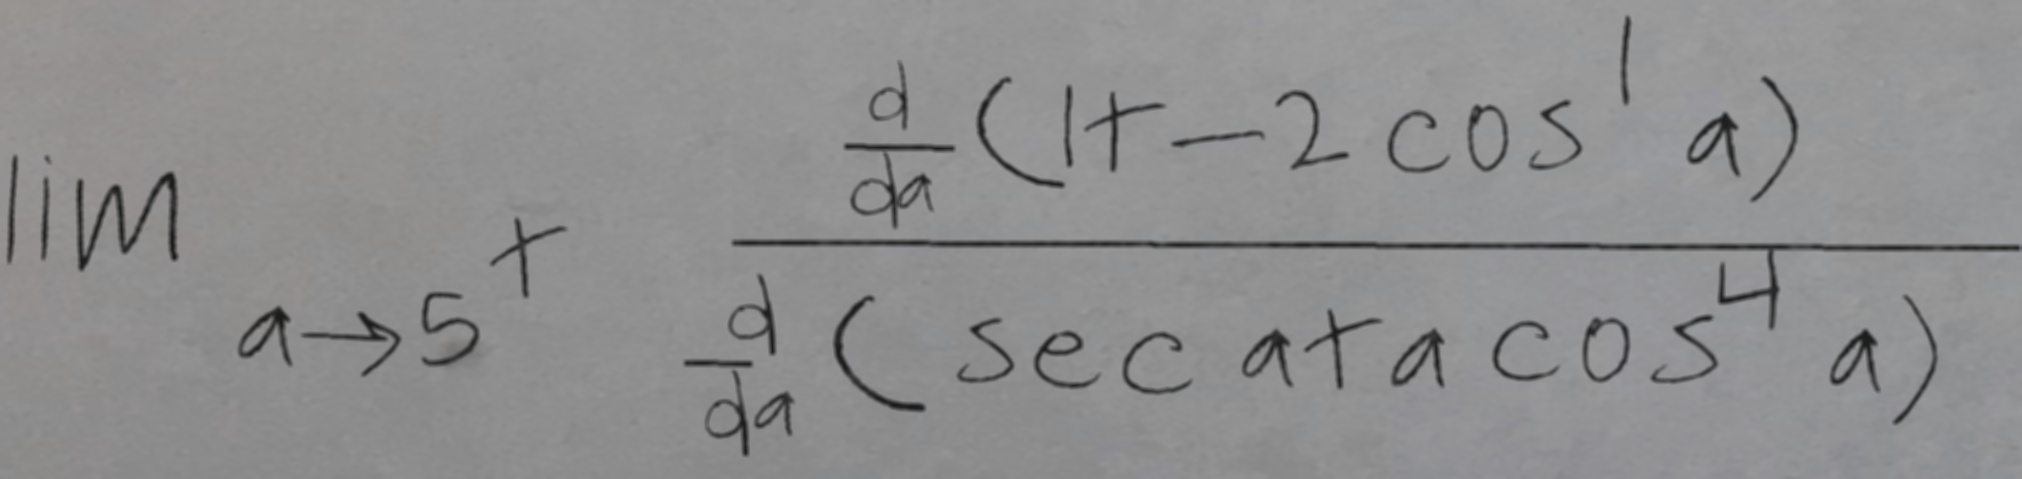 \lim_{a \to 5^+} \frac{\frac{d}{da}(1+-2\cos^1 a)}{\frac{d}{da}(\sec a+a\cos^4 a)}